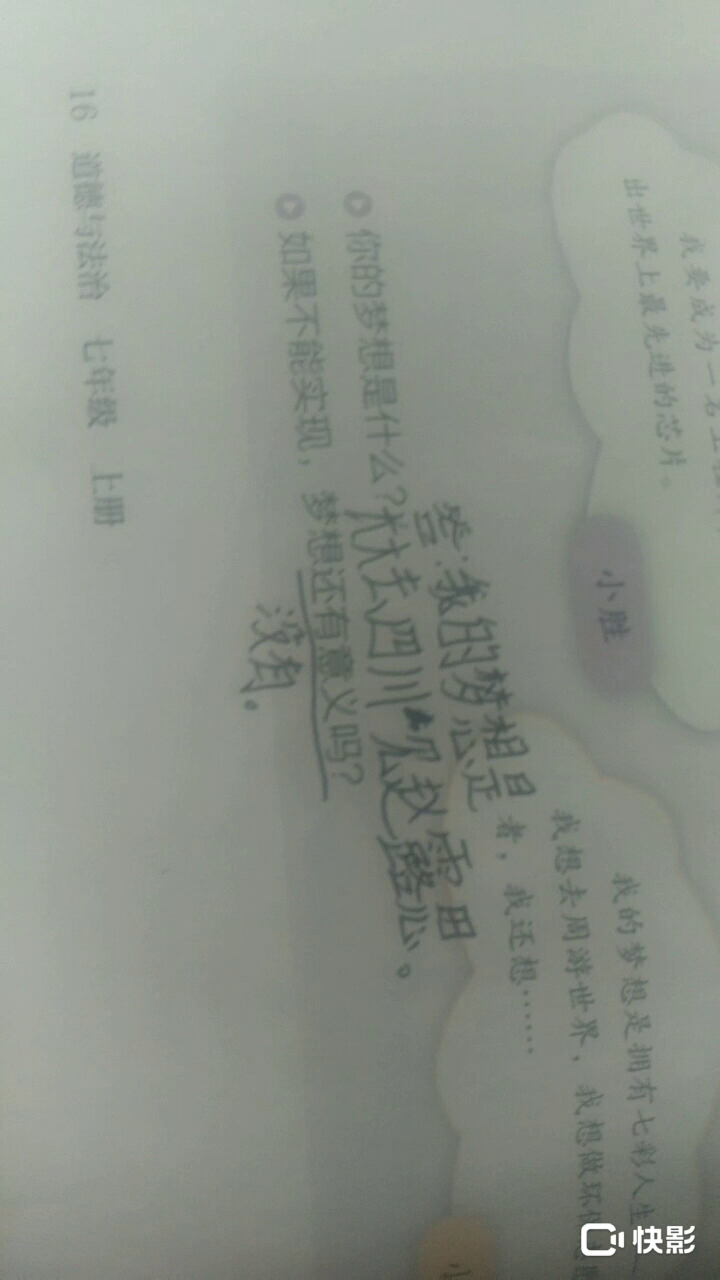 我要成为一名工程
出世界上最先进的芯片。
小胜
我的梦想是拥有七彩人生
我想去周游世界，我想做环保
者，我还想……
小
你的梦想是什么？
答：我的梦想是
去四川 赵露思。
如果不能实现，梦想还有意义吗？
没有。
16 道德与法治 七年级 上册
快影